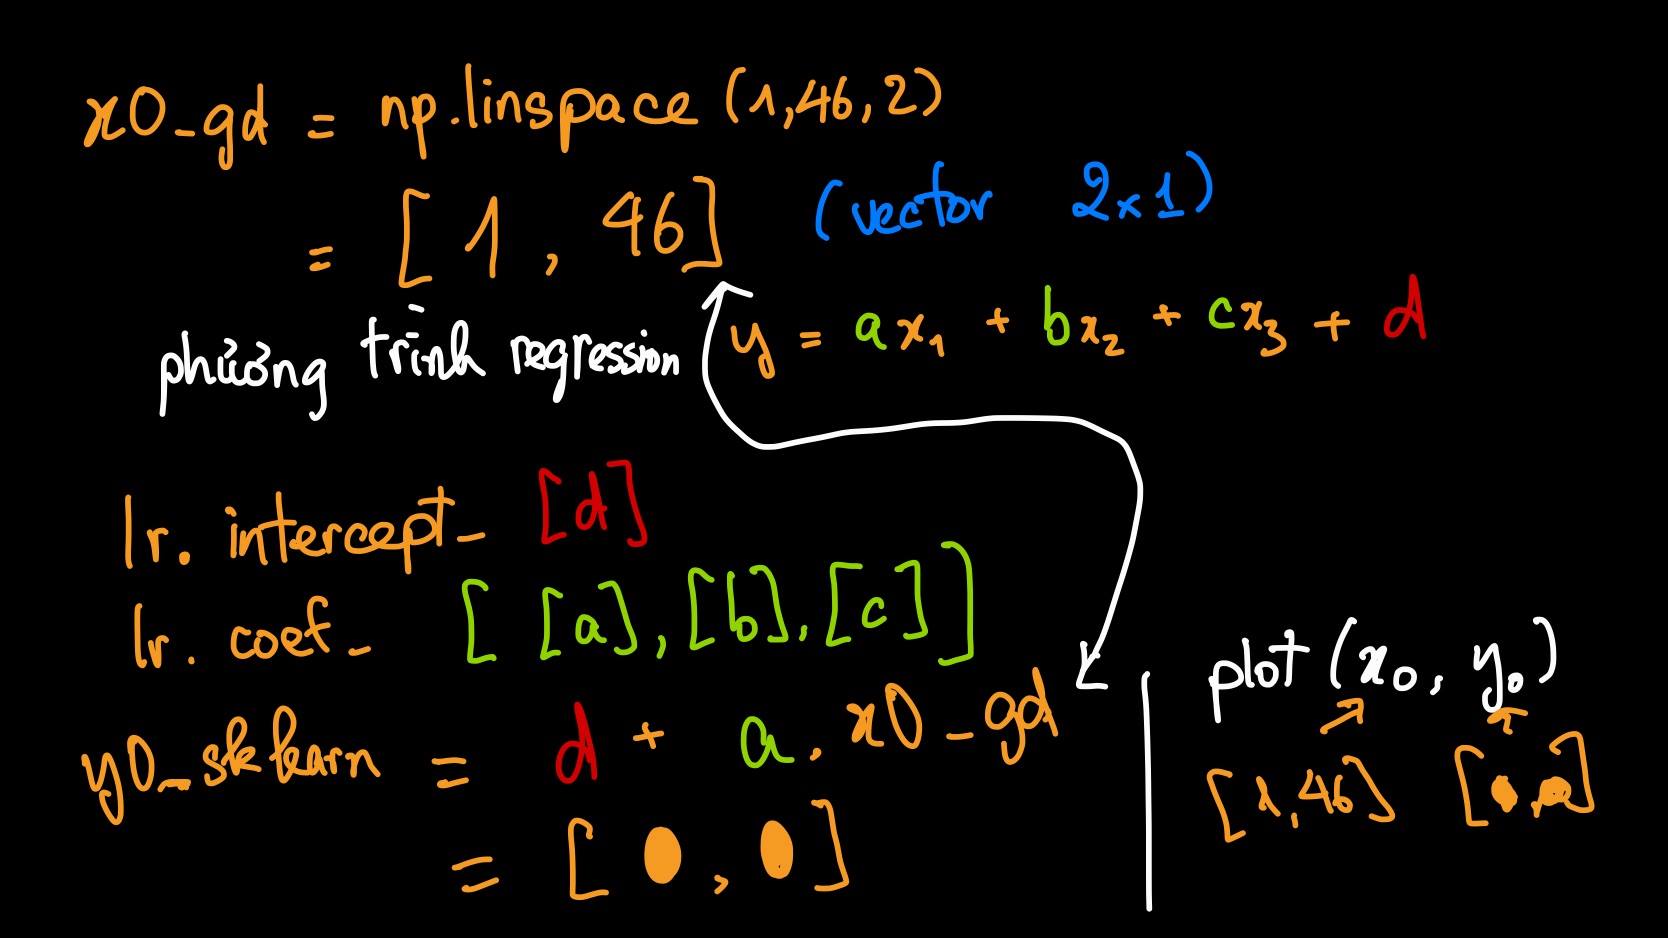 x0_gd = np.linspace (1,46,2)
= [ 1 , 46] (vector 2x1)
phương trình regression y = ax₁ + bx₂ + cx₃ + d
lr. intercept_ [d]
lr. coef_ [ [a], [b], [c] ]
y0_sklearn = d + a. x0_gd
= [ , ]
plot (x₀, y₀)
[1,46] [ , ]